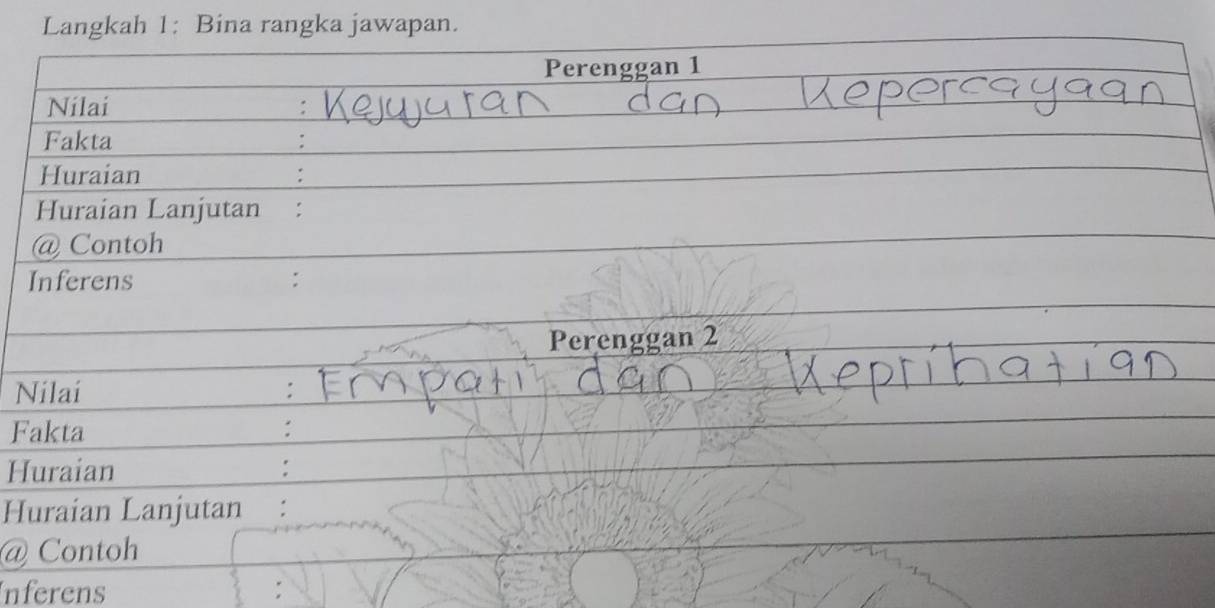 Langkah 1: Bina rangka jawapan.
Perenggan 1
Nilai : Kejujuran dan Kepercayaan
Fakta :
Huraian :
Huraian Lanjutan :
@ Contoh
Inferens :
Perenggan 2
Nilai : Empati dan Keprihatian
Fakta :
Huraian :
Huraian Lanjutan :
@ Contoh
Inferens :